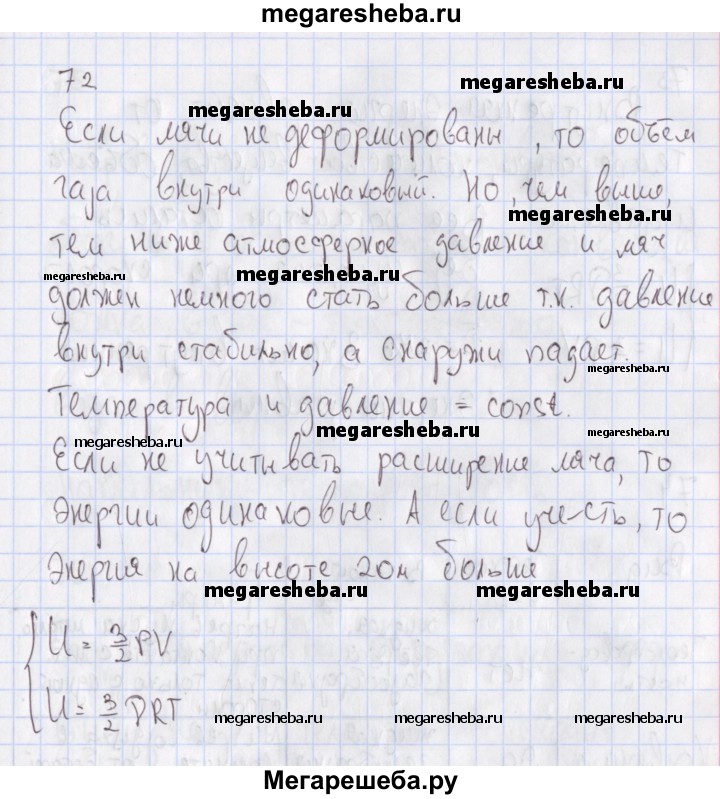 megaresheba.ru
72
megaresheba.ru
megaresheba.ru
Если мячи не деформированы, то объём
газа внутри одинаковый. Но, чем выше,
megaresheba.ru
тем ниже атмосферное давление и мяч
megaresheba.ru
megaresheba.ru
должен немного стать больше т.к. давление
внутри стабильно, а снаружи падает.
megaresheba.ru
Температура и давление = const.
megaresheba.ru
megaresheba.ru
megaresheba.ru
Если не учитывать расширение мяча, то
энергии одинаковые. А если учесть, то
энергия на высоте 20м больше
megaresheba.ru
megaresheba.ru
U = 3/2 PV
U = 3/2 νRT
megaresheba.ru
megaresheba.ru
megaresheba.ru
Мегарешеба.ру